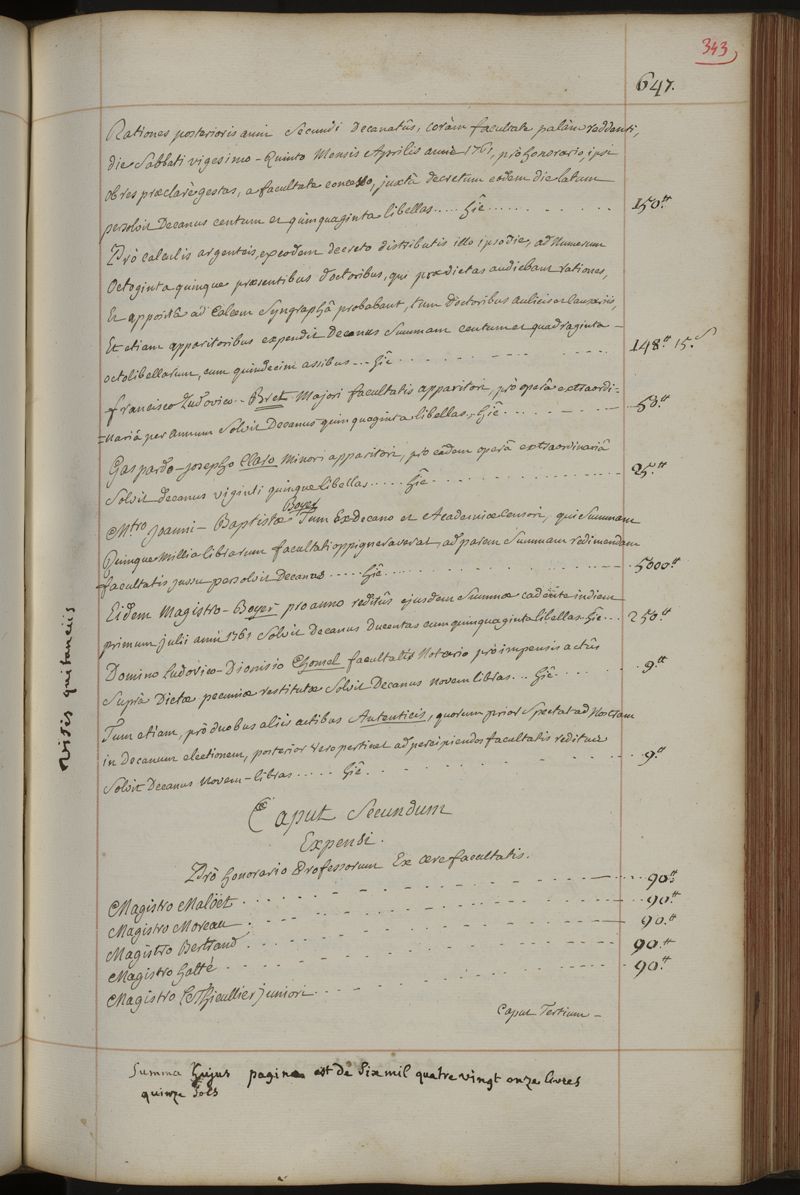 343
647.
Rationes posterioris anni Secundi Decanatûs, coràm facultate palàm reddenti,
die Sabbati vigesimo-Quinto Mensis Aprilis anni 1761, prò honorario, ipsi
ob res præclarè gestas, a facultate concesso, juxtà decretum eodem die latum
persolvit Decanus centum et quinquaginta libellas..... hîc........ 150.tt
Prò calculis argenteis, ex eodem decreto distributis illo ipso die, ad Numerum
Octoginta quinque præsentibus doctoribus, qui prædictas audiebant rationes,
Et appositâ ad Calcem Syngraphâ probabant, tum doctoribus aulicis
Et etiam apparitoribus expendit Decanus Summam centum et quadraginta-
octo libellarum, cum quindecim assibus... hîc........ 148.tt 15.s
francisco Ludovico-Bret Majori facultatis apparitori, prò operâ extraordi-
=nariâ per annum Solvit Decanus quinquaginta libellas. hîc........ 50.tt
Gaspardo-Josepho Claro Minori apparitori, prò eâdem operâ extraordinariâ
Solvit decanus viginti quinque libellas..... hîc........ 25.tt
M.tro Joanni-Baptistæ Boyer Tum Ex Decano et Academiæ Censori, qui Summam
Quinque Millia librarum facultati oppigneraverat, ad parem Summam redimendam
facultatis jussu persolvit Decanus..... hîc........ 5000.tt
Eidem Magistro-Boyer pro anno reditûs ejusdem Summæ cadente in diem
primum julii anni 1761 Solvit Decanus Ducentas cum quinquaginta libellas. hîc... 250.tt
Domino Ludovico-Dionisio Chomel facultatis Notario prò impensis actûs
Suprà Dictæ pecuniæ restitutæ Solvit Decanus novem libras... hîc........ 9.tt
Tum etiam, prò duobus aliis actibus Autenticis, quorum prior Spectat ad Nostram
in Decanum electionem, posterior vero pertinet ad percipiendos facultatis reditus
Solvit Decanus Novem-libras..... hîc........ 9.tt
Visis quitanciis
Caput Secundum
Expensi.
Prò honorario Professorum Ex ære facultatis.
Magistro Malöet........ 90.tt
Magistro Moreau........ 90.tt
Magistro Bertrand........ 90.tt
Magistro Gatté........ 90.tt
Magistro LeThieullier juniori........ 90.tt
Caput Tertium-
Summa hujus paginæ est de Six mil quatre vingt onze livres
quinze sols